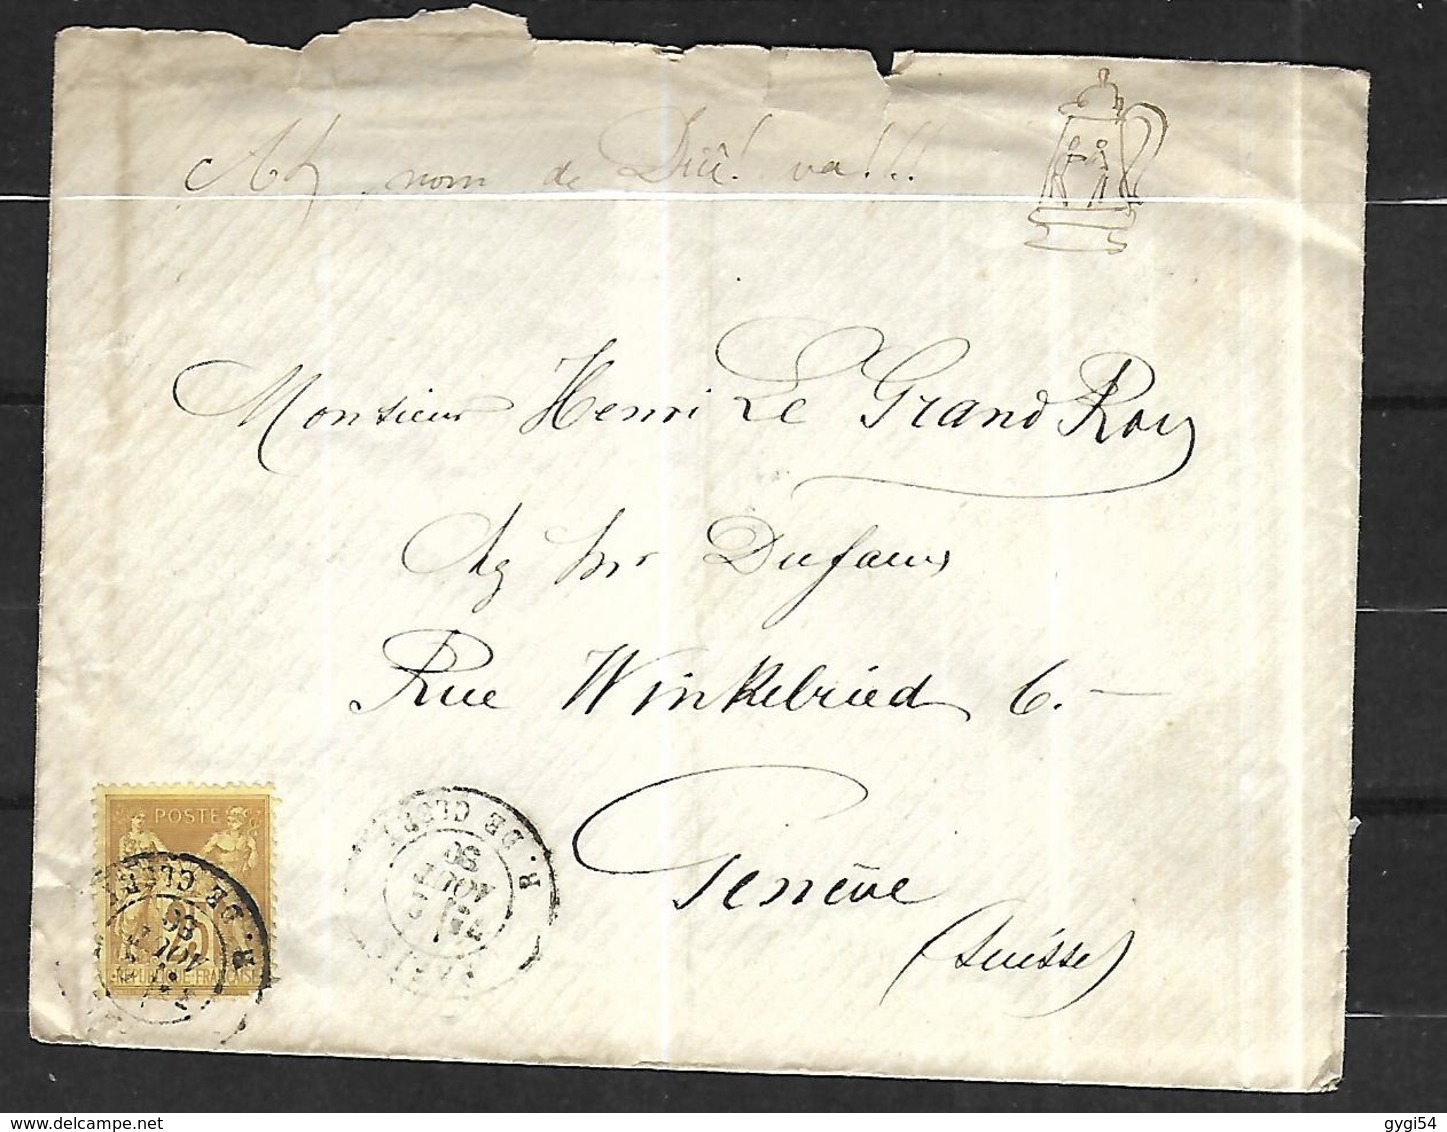 Ah nom de Diû! va!!!
Monsieur Henri Le Grand Roy
Chz Mr Dufaux
Rue Winkelried 6. —
Genève
(Suisse)
POSTE
25
REPUBLIQUE FRANÇAISE
R. DE CLERY
AOUT
86
R. DE CLERY
AOUT
86
gygi54